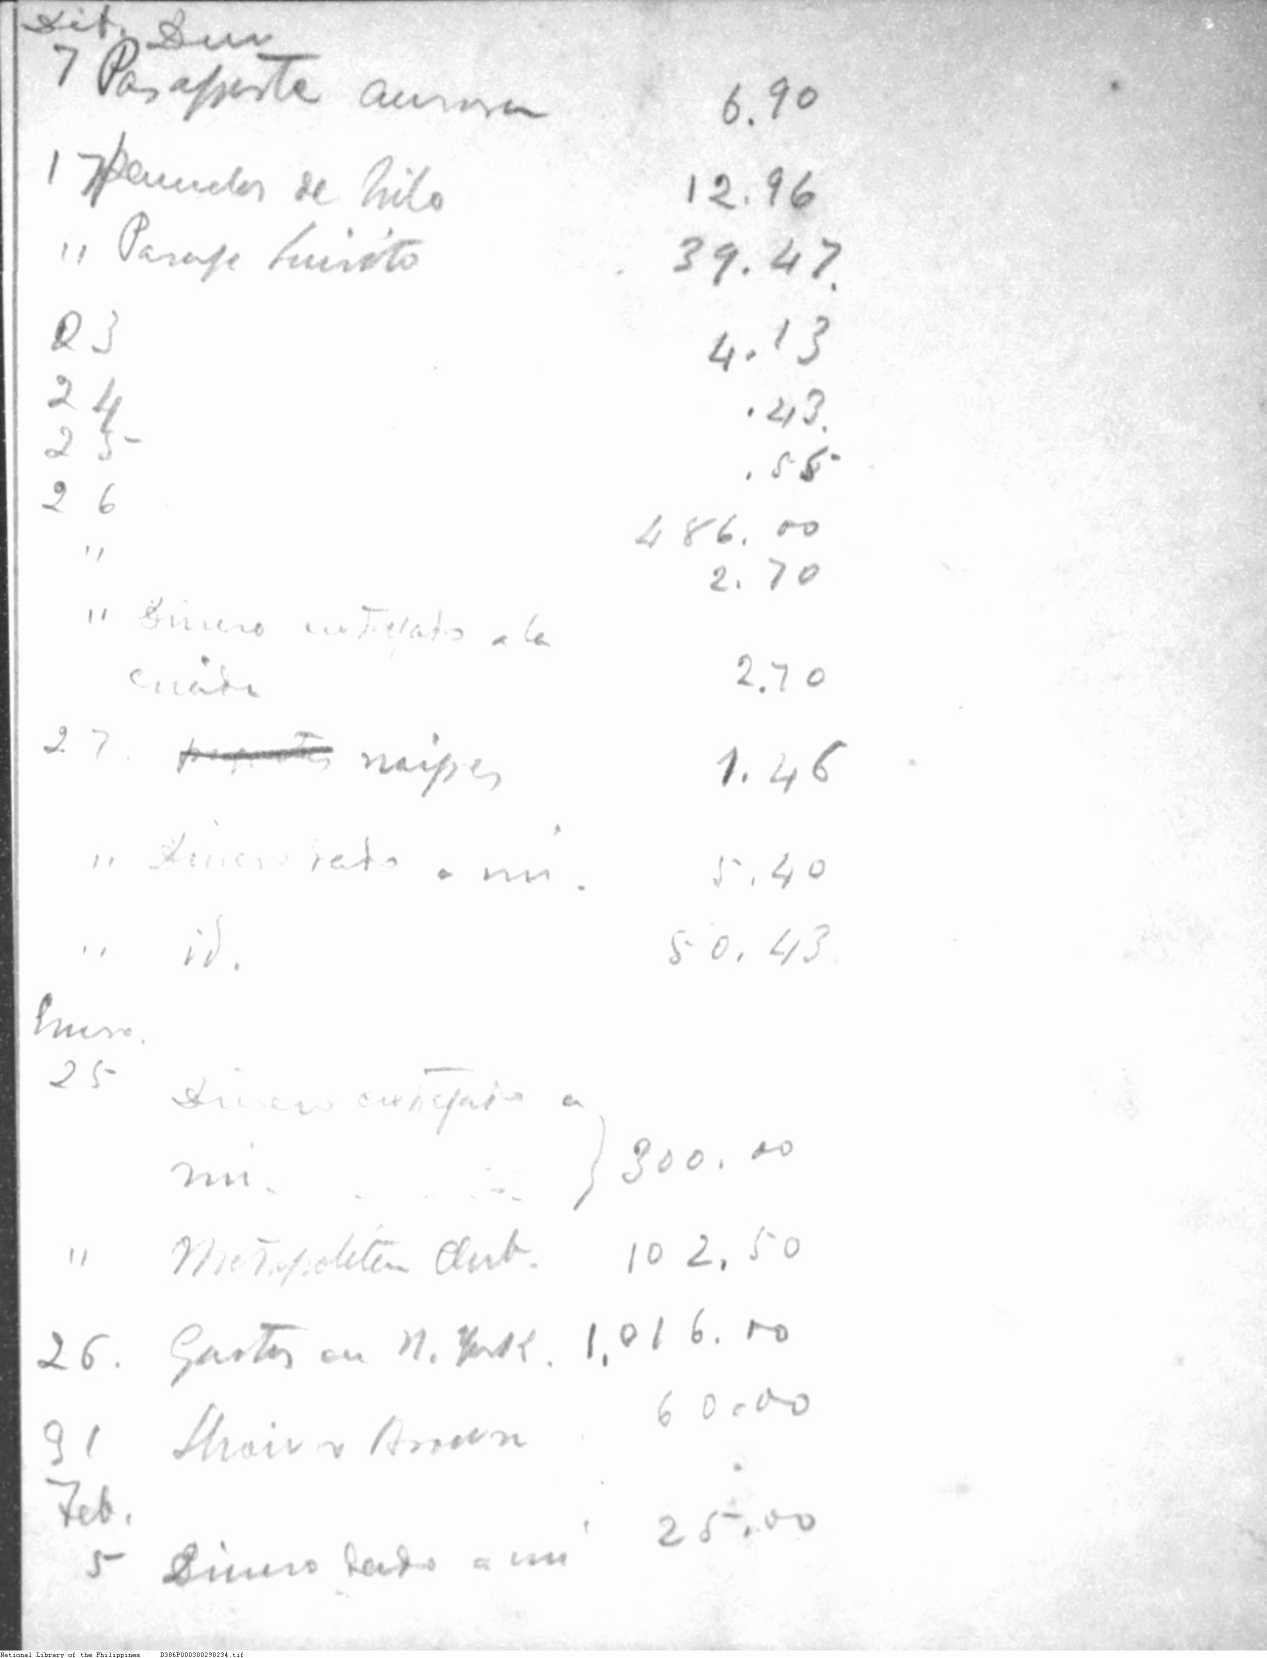 7 Pasaporte aurora 6.90
17 Panuelos de hilo 12.96
" Pasaje Luisito 39.47
23 4.13
24 .43
25 .55
26 486.00
" 2.70
" Dinero entregado a la
criada 2.70
27. naipes 1.46
" Dinero dado a mi. 5.40
" id. 50.43
Enero.
25 Dinero entregado a
mi. 300.00
" Metropolitan Club. 102.50
26. Gastos en N. York. 1,016.00
31 Brown 60.00
Feb.
5 Dinero dado a mi 25.00
National Library of the Philippines